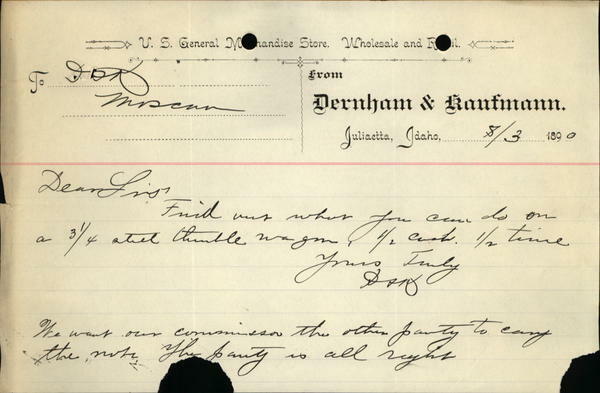 U. S. General Merchandise Store. Wholesale and Retail.
To D & K
Moscow
From
Dernham & Kaufmann.
Juliaetta, Idaho, 8/3 1890
Dear Sirs
Find out what you can do on
a 3 1/4 steel thimble wagon, 1/2 cash. 1/2 time
Yours Truly
D & K
We want our commission the other party to carry
the note. The party is all right